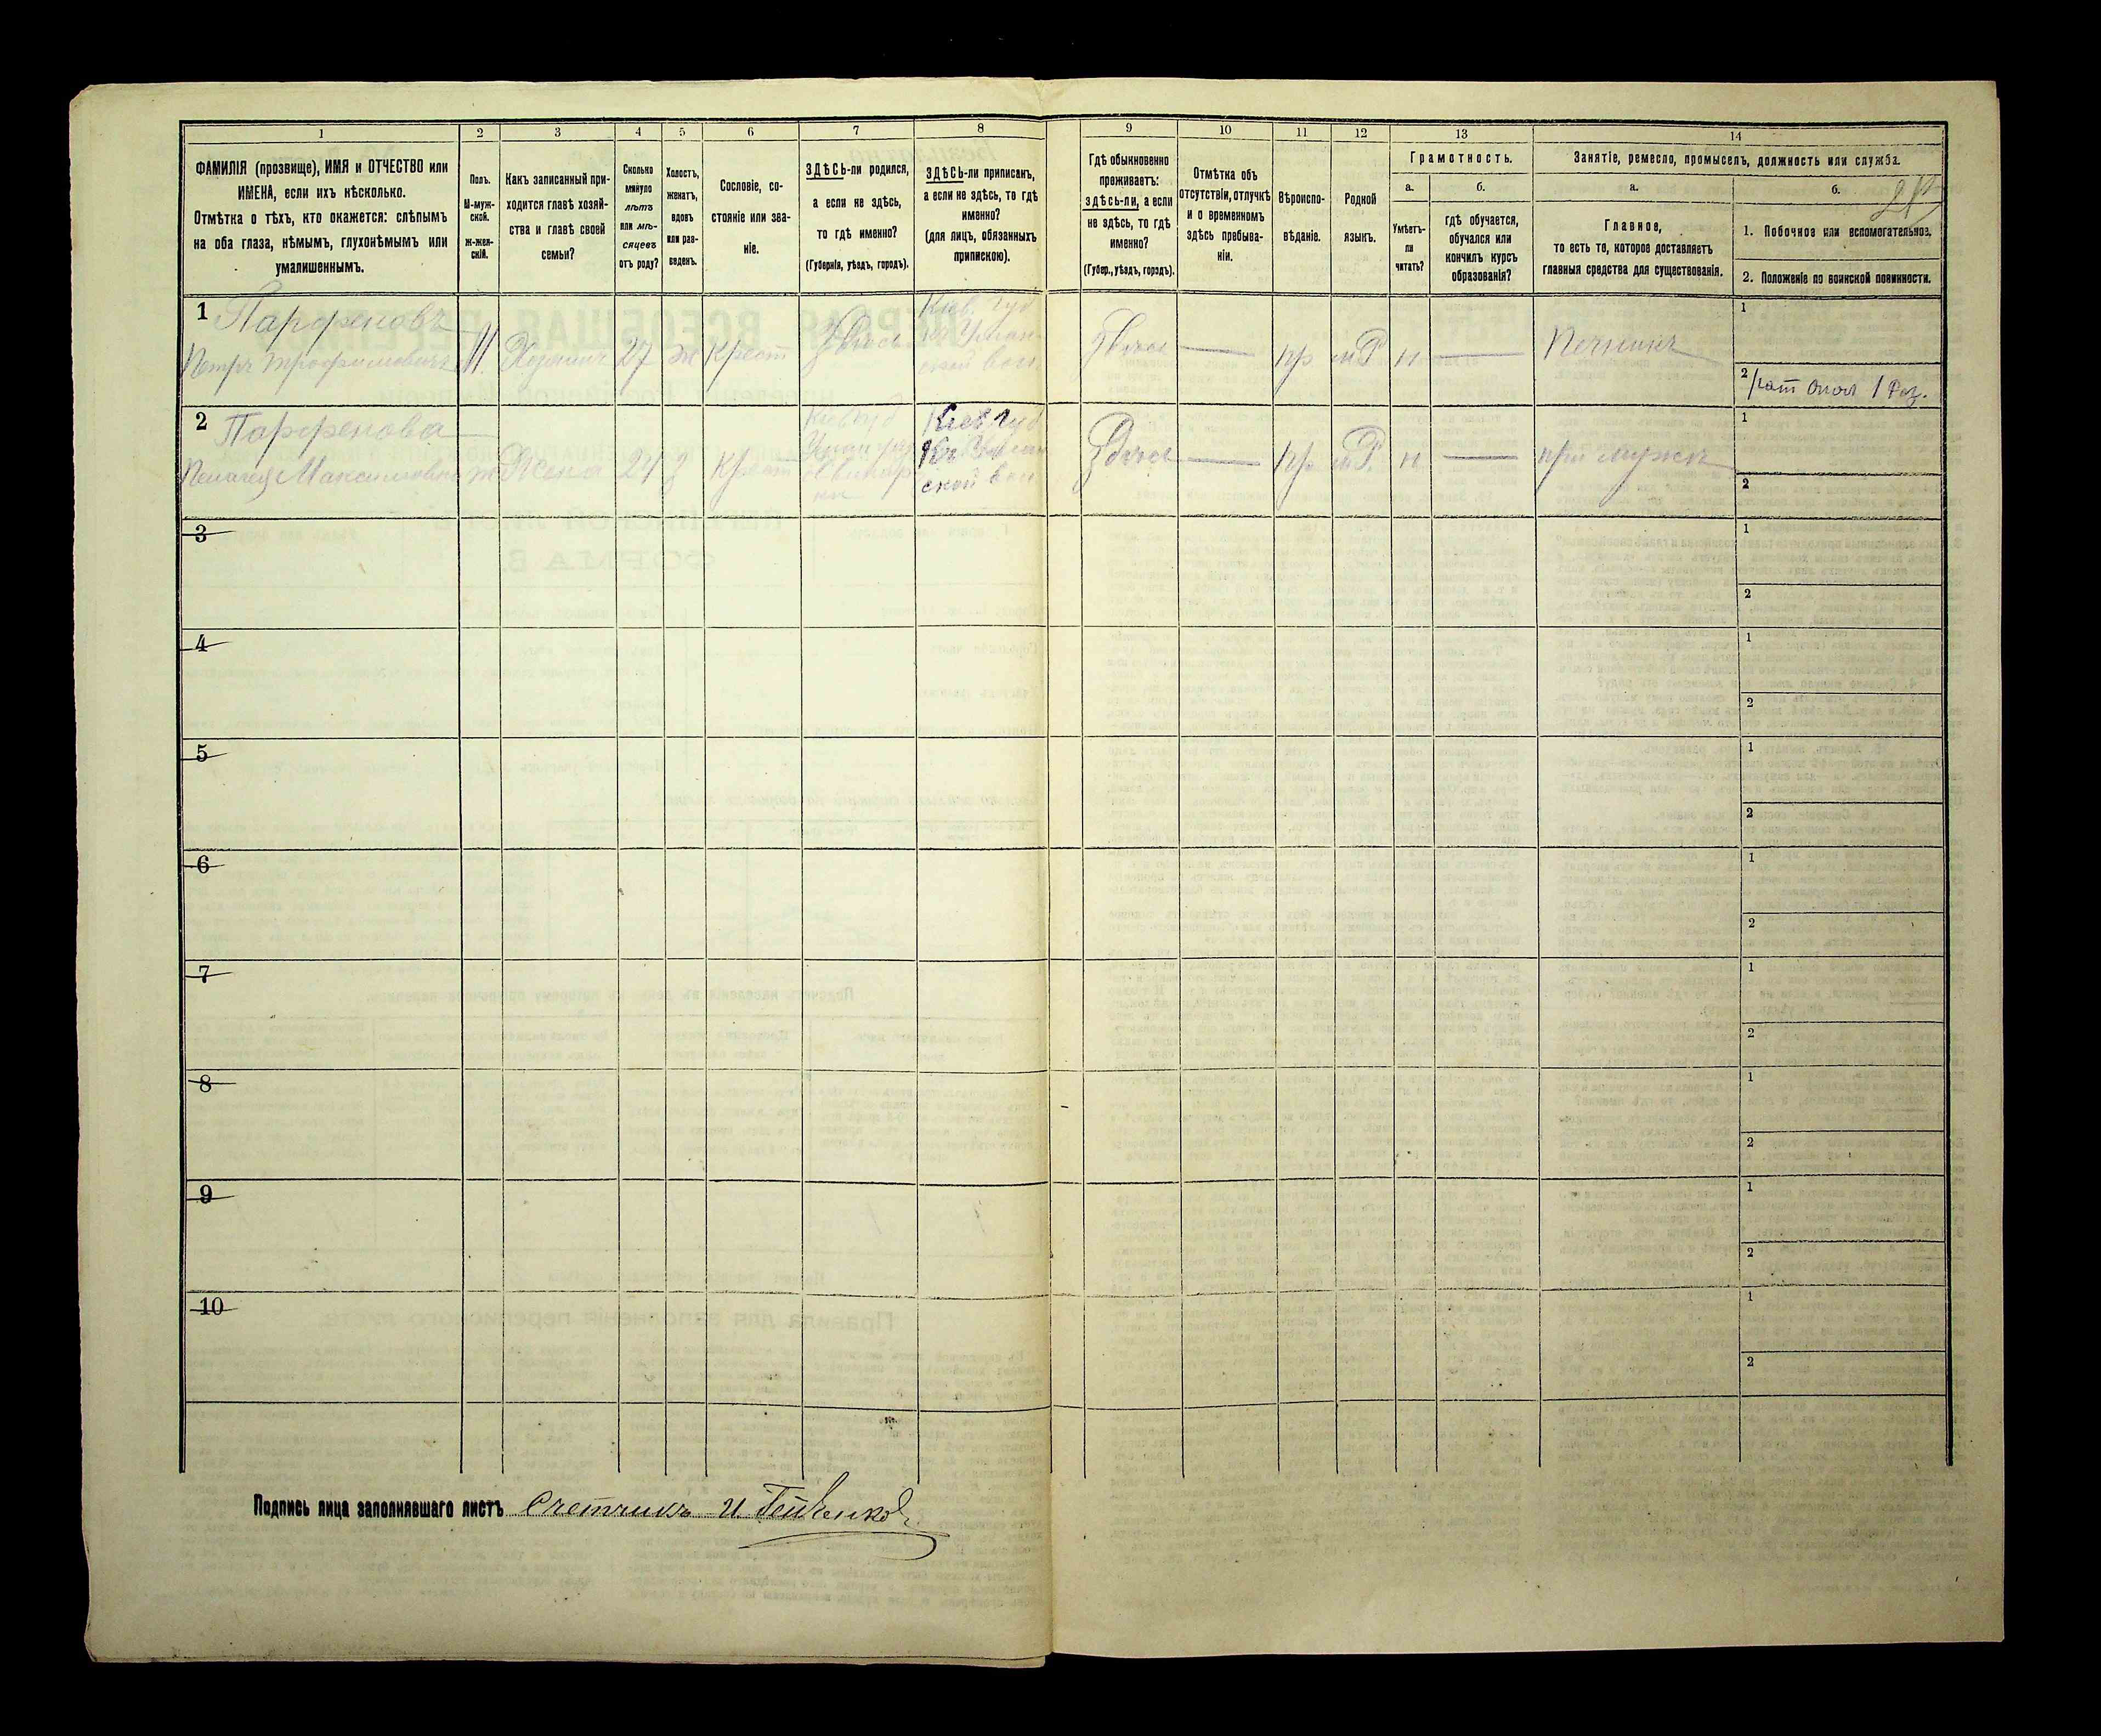 1 2 3 4 5 6 7 8 9 10 11 12 13 14
ФАМИЛІЯ (прозвище), ИМЯ и ОТЧЕСТВО или
ИМЕНА, если ихъ нѣсколько.
Отмѣтка о тѣхъ, кто окажется: слѣпымъ
на оба глаза, нѣмымъ, глухонѣмымъ или
умалишеннымъ.
Полъ.
М-муж-
ской.
ж-жен-
скій.
Какъ записанный при-
ходится главѣ хозяй-
ства и главѣ своей
семьи?
Сколько
минуло
лѣтъ
или мѣ-
сяцевъ
отъ роду?
Холостъ,
женатъ,
вдовъ
или раз-
веденъ.
Сословіе, со-
стояніе или зва-
ніе.
ЗДѢСЬ-ли родился,
а если не здѣсь,
то гдѣ именно?
(Губернія, уѣздъ, городъ).
ЗДѢСЬ-ли приписанъ,
а если не здѣсь, то гдѣ
именно?
(для лицъ, обязанныхъ
припискою).
Гдѣ обыкновенно
проживаетъ:
здѣсь-ли, а если
не здѣсь, то гдѣ
именно?
(Губер., уѣздъ, городъ).
Отмѣтка объ
отсутствіи, отлучкѣ
и о временномъ
здѣсь пребыва-
ніи.
Вѣроиспо-
вѣданіе.
Родной
языкъ.
Грамотность.
а.
Умѣетъ-
ли
читать?
б.
гдѣ обучается,
обучался или
кончилъ курсъ
образованія?
Занятіе, ремесло, промыселъ, должность или служба.
а.
Главное,
то есть то, которое доставляетъ
главныя средства для существованія.
б.
1. Побочное или вспомогательное.
2. Положеніе по воинской повинности.
1 Парфеновъ
Петръ Трофимовичъ
М. Хозяинъ 27 ж Крест Здѣсь
Кіев. губ
Уман-
ской вол
Здѣсь — пр м.Р н — Печникъ
1
2 рат опол 1 раз.
2 Парфенова
Пелагея Максимовна
ж Жена 24 з Крест
Кіев губ
Киев губ
ской вол
Здѣсь — пр м.Р. н — при мужѣ
1
2
3
1
2
4
1
2
5
1
2
6
1
2
7
1
2
8
1
2
9
1
2
10
1
2
Подпись лица заполнявшаго листъ Счетчикъ И.